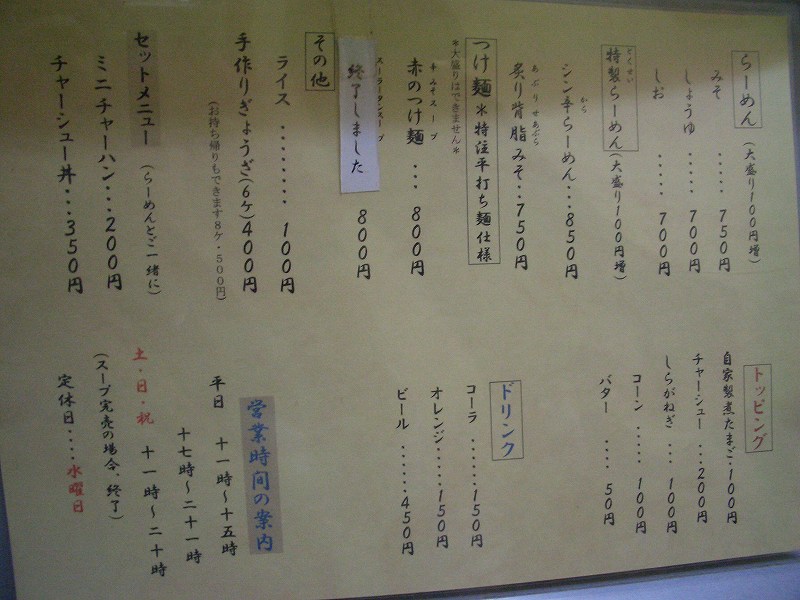 らーめん (大盛り100円増)
みそ ・・・・・ 750円
しょうゆ ・・・・・ 700円
しお ・・・・・ 700円
特製らーめん (大盛り100円増)
とくせい
シン辛らーめん・・・850円
から
炙り背脂みそ・・750円
あぶりせあぶら
つけ麺 ※特注平打ち麺仕様
*大盛りはできません*
赤のつけ麺 ・・・ 800円
辛みそスープ
スーラータンスープ
終了しました 800円
その他
ライス ・・・・・・・・ 100円
手作りぎょうざ(6ケ)400円
(お持ち帰りもできます8ケ・500円)
セットメニュー (らーめんとご一緒に)
ミニチャーハン・・・200円
チャーシュー丼・・・350円
トッピング
自家製煮たまご・100円
チャーシュー ・・・200円
しらがねぎ ・・・100円
コーン ・・・・・ 100円
バター ・・・・ 50円
ドリンク
コーラ ・・・・・・150円
オレンジ・・・・・150円
ビール ・・・・・・・450円
営業時間の案内
平日 十一時〜十五時
十七時〜二十一時
土・日・祝 十一時〜二十時
(スープ完売の場合、終了)
定休日・・・・水曜日